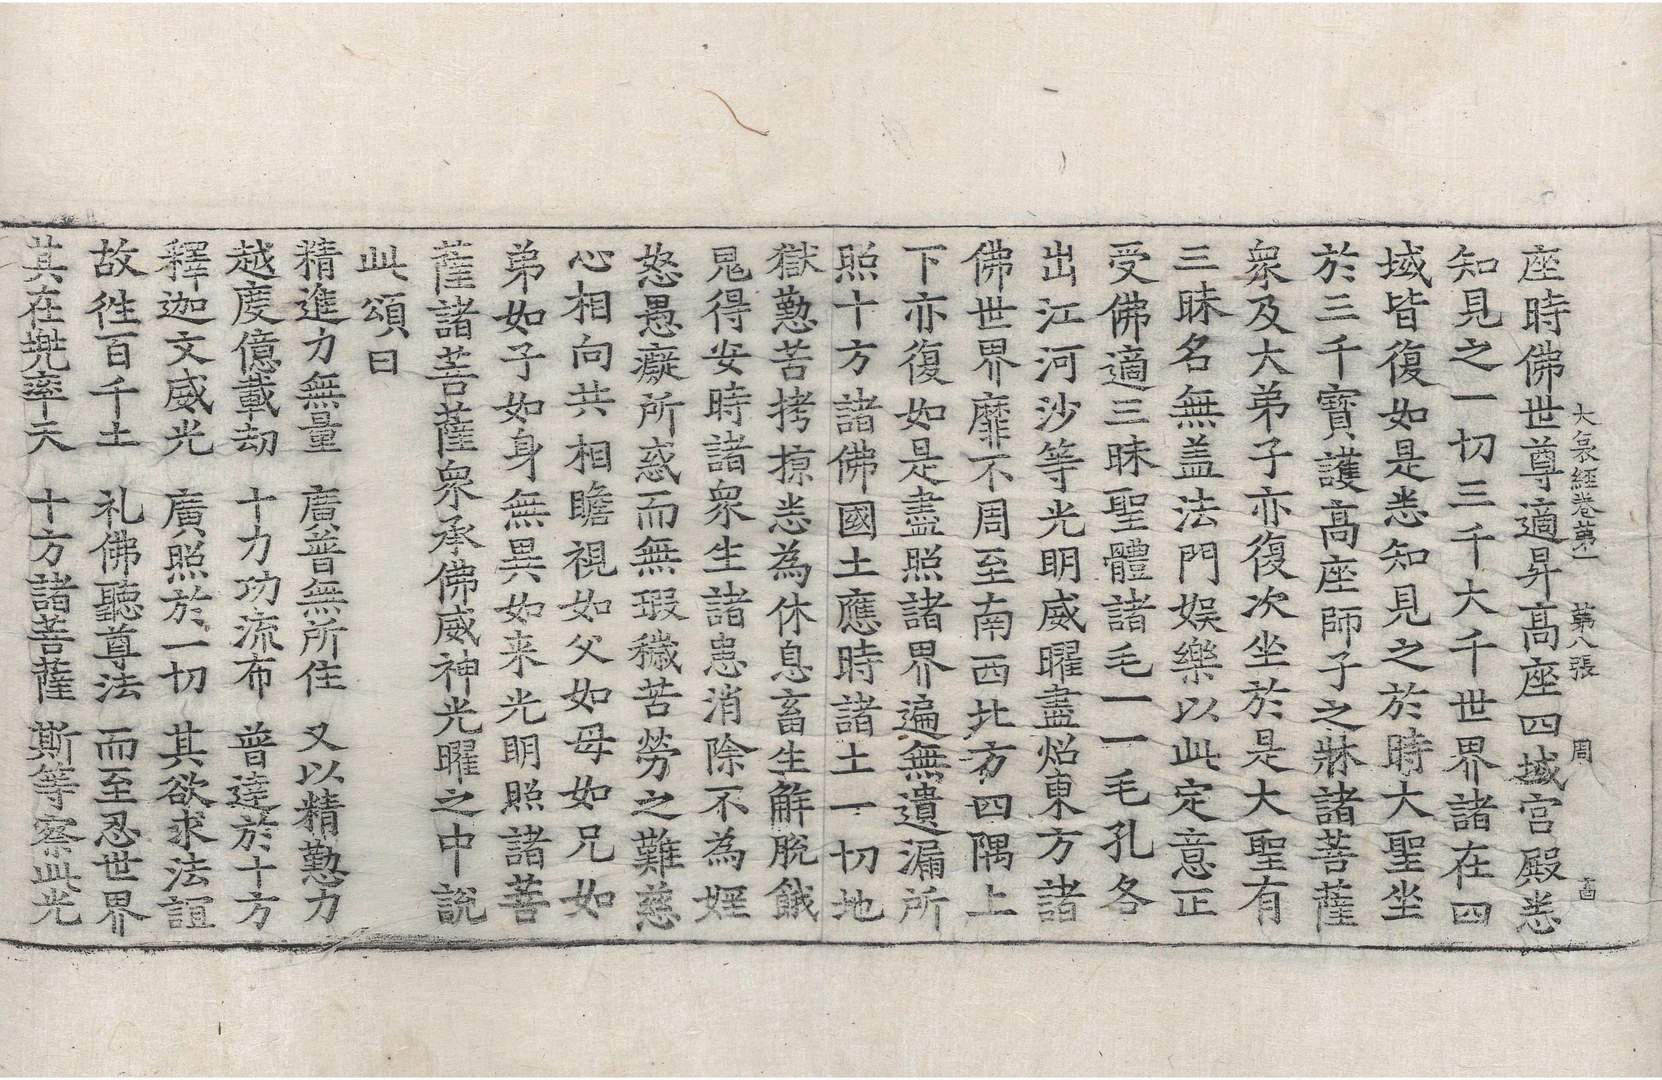 大哀經卷第一 第八張 周
座時佛世尊適昇高座四域宮殿悉
知見之一切三千大千世界諸在四
域皆復如是悉知見之於時大聖坐
於三千寶護高座師子之牀諸菩薩
衆及大弟子亦復次坐於是大聖有
三昧名無盖法門娯樂以此定意正
受佛適三昧聖體諸毛一一毛孔各
出江河沙等光明威曜盡炤東方諸
佛世界靡不周至南西北方四隅上
下亦復如是盡照諸界遍無遺漏所
照十方諸佛國土應時諸土一切地
獄懃苦拷掠悉為休息畜生解脫餓
鬼得安時諸衆生諸患消除不為婬
怒愚癡所惑而無瑕穢苦勞之難慈
心相向共相瞻視如父如母如兄如
弟如子如身無異如来光明照諸菩
薩諸菩薩衆承佛威神光曜之中說
此頌曰
精進力無量 廣普無所住 又以精懃力
越度億載劫 十力功流布 普達於十方
釋迦文威光 廣照於一切 其欲求法誼
故往百千土 礼佛聽尊法 而至忍世界
其在兠率天 十方諸菩薩 斯等察此光